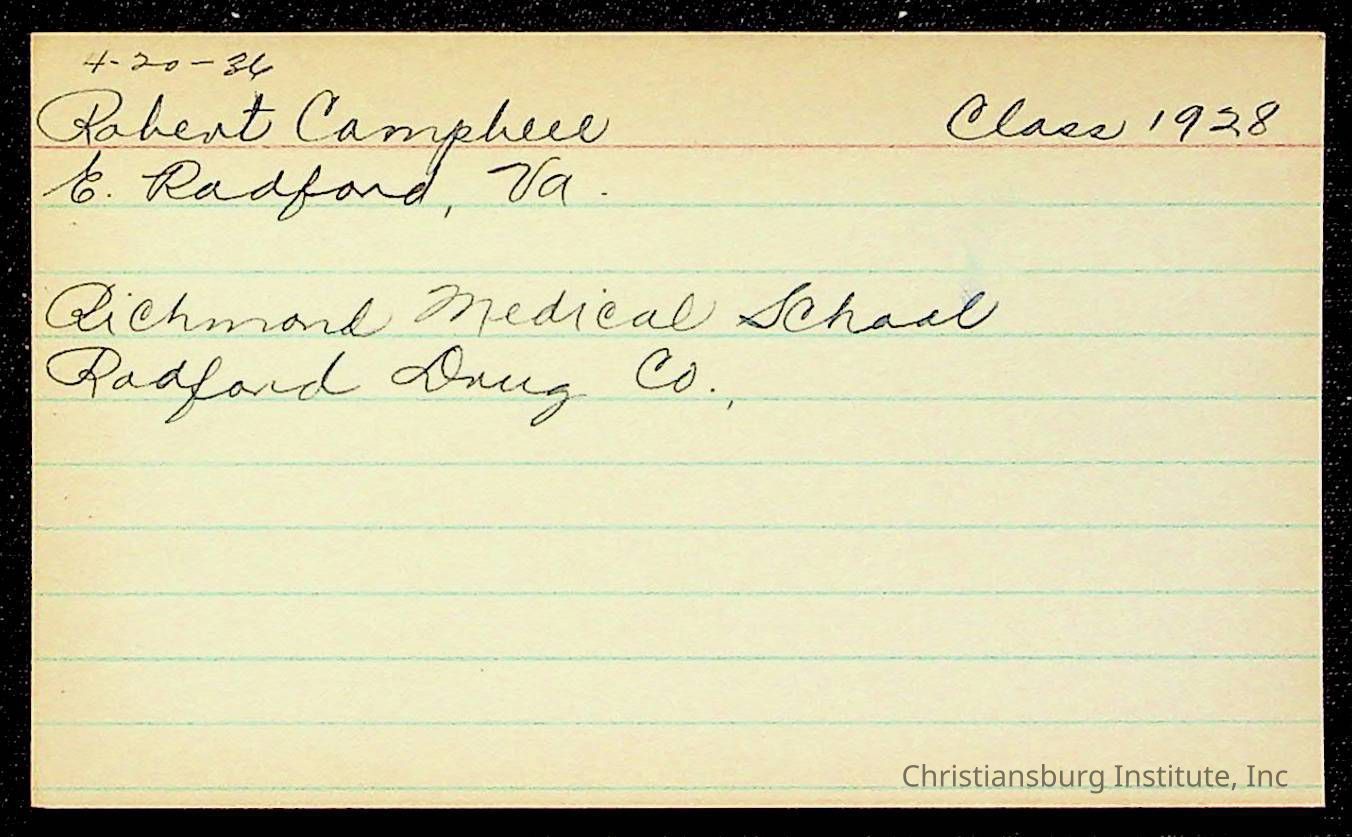 4-20-36
Robert Campbell Class 1928
E. Radford, Va.
Richmond Medical School
Radford Drug Co.,
Christiansburg Institute, Inc